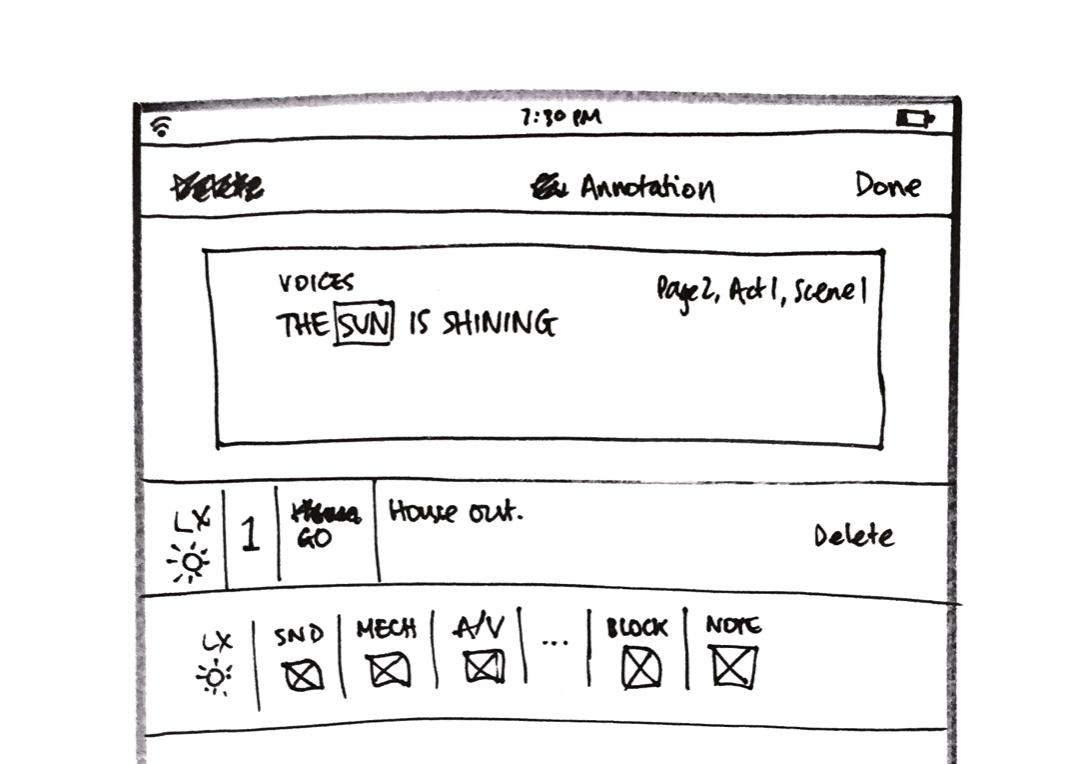 7:30 PM
Annotation
Done
VOICES
Page 2, Act 1, Scene 1
THE SUN IS SHINING
LX
1
GO
House out.
Delete
LX
SND
MECH
A/V
...
BLOCK
NOTE